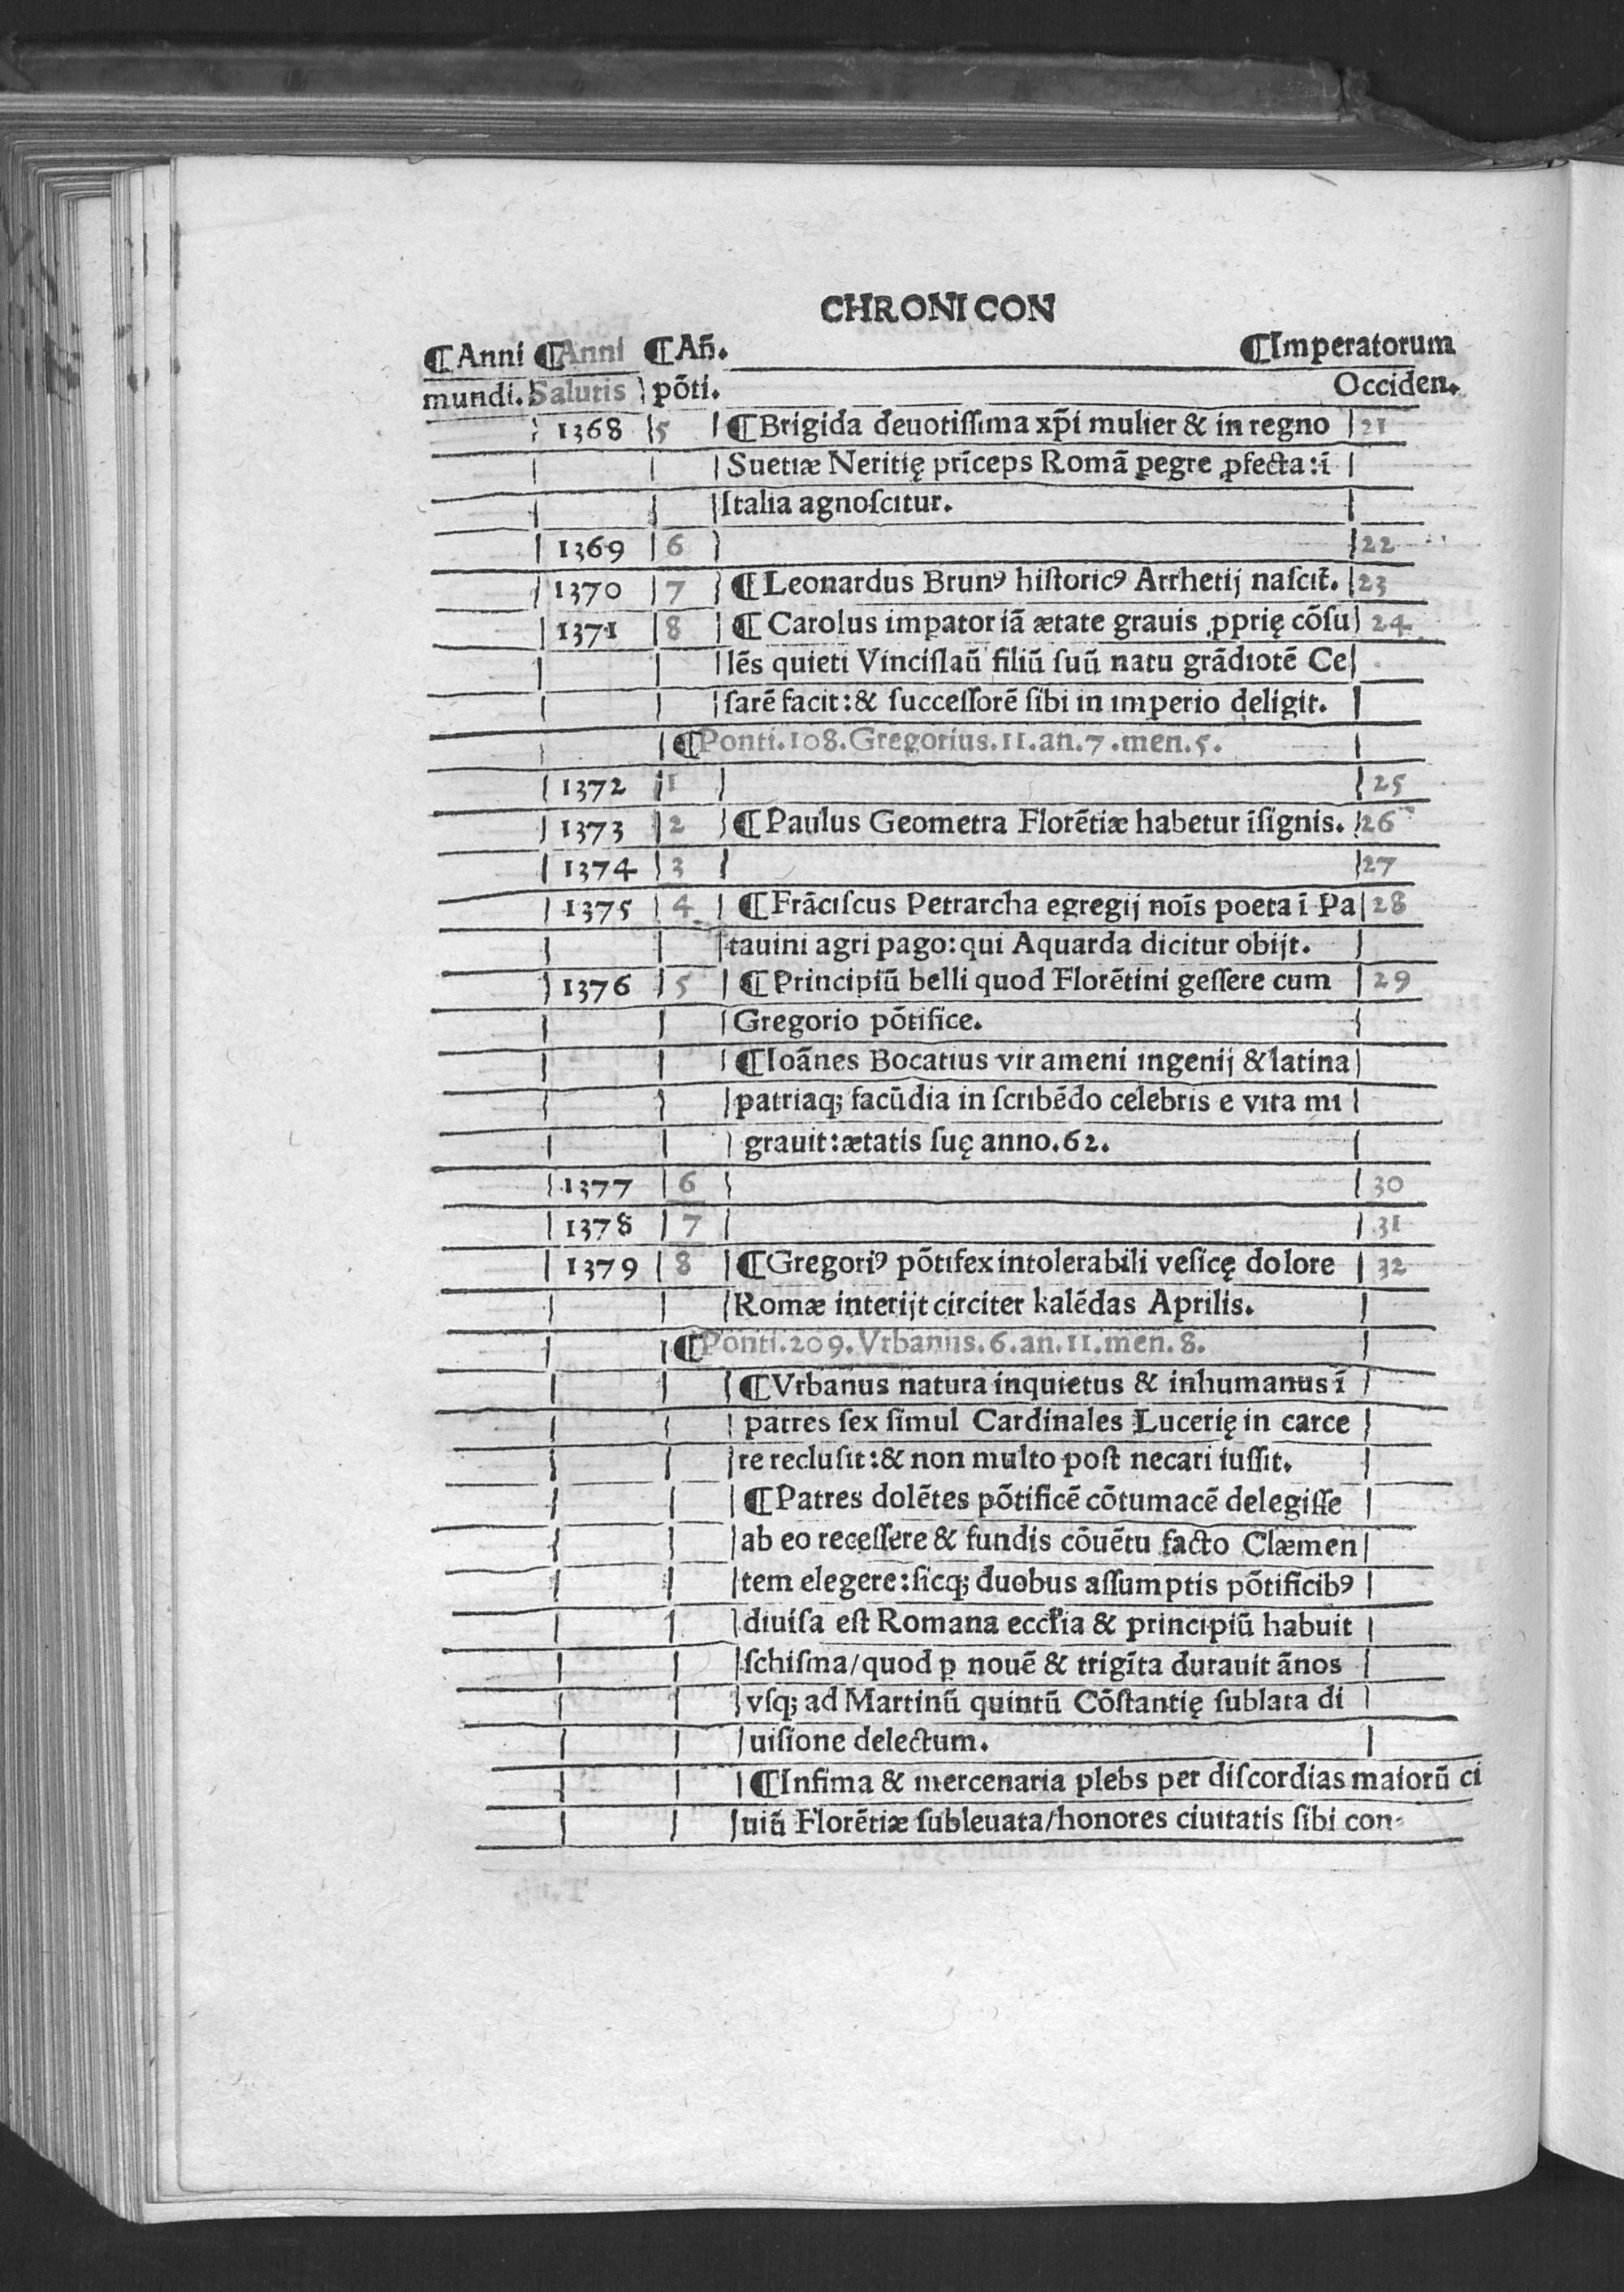 CHRONICON
¶Anni ¶Anni ¶Añ. ¶Imperatorum
mundi. Salutis põti. Occiden.
1368 5 ¶Brigida deuotiſſima xp̄i mulier & in regno 21
Suetiæ Neritię prīceps Romā ꝑegre ꝓfecta: ī
Italia agnoſcitur.
1369 6 22
1370 7 ¶Leonardus Brunꝰ hiſtoricꝰ Arrhetij naſcit̃. 23
1371 8 ¶Carolus imꝑator iā ætate grauis ꝓprię cōſu 24
lēs quieti Vinciſlaū filiū ſuū natu grādiotē Ce
ſarē facit: & ſucceſſorē ſibi in imperio deligit.
¶Ponti.108.Gregorius.11.an.7.men.5.
1372 1 25
1373 2 ¶Paulus Geometra Florētiæ habetur īſignis. 26
1374 3 27
1375 4 ¶Frāciſcus Petrarcha egregij noīs poeta ī Pa 28
tauini agri pago: qui Aquarda dicitur obijt.
1376 5 ¶Principiū belli quod Florētini geſſere cum 29
Gregorio põtifice.
¶Ioānes Bocatius vir ameni ingenij & latina
patriaq; facūdia in ſcribēdo celebris e vita mi
grauit: ætatis ſuę anno.62.
1377 6 30
1378 7 31
1379 8 ¶Gregoriꝰ põtifex intolerabili veſicę dolore 32
Romæ interijt circiter kalēdas Aprilis.
¶Ponti.209.Vrbanus.6.an.11.men.8.
¶Vrbanus natura inquietus & inhumanus ī
patres ſex ſimul Cardinales Lucerię in carce
re recluſit: & non multo poſt necari iuſſit.
¶Patres dolētes põtificē cōtumacē delegiſſe
ab eo receſſere & fundis cōuētu facto Clæmen
tem elegere: ſicq; duobus aſſumptis põtificibꝰ
diuiſa eſt Romana eccľia & principiū habuit
ſchiſma/quod ꝑ nouē & trigīta durauit ānos
vſq; ad Martinū quintū Cōſtantię ſublata di
uiſione delectum.
¶Infima & mercenaria plebs per diſcordias maiorū ci
uiū Florētiæ ſubleuata/honores ciuitatis ſibi con-